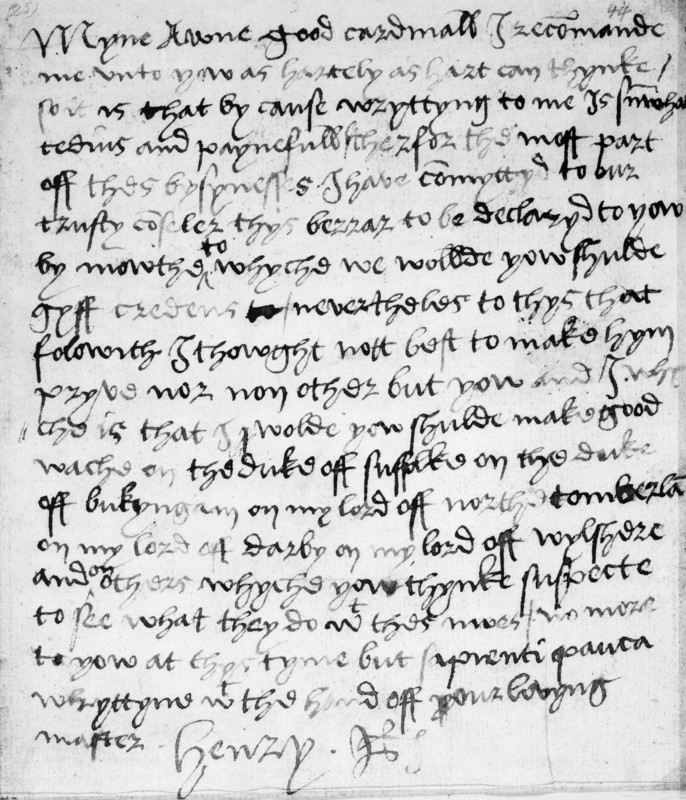 44
Myne Awne good cardinall I recomande
me unto yow as hartely as hart can thynke /
so it is that by cause wryttyng to me is sumwhat
tedius and paynefull therfor the most part
off thes bysynesses I have comyttyd to our
trusty conseler thys berrar to be declaryd to yow
by mowthe to whyche we wollde yow shulde
gyff credens / nevertheles to thys that
folowith I thowght nott best to make hym
pryve nor non other but yow and I / whi
che is that I wolde yow shulde make good
wache on the duke off suffolke on the duke
off bukyngam on my lord off northetomberla
on my lord off darby on my lord off wylshere
and on others whyche yow thynke suspecte
to see what they do wt thes nwes / no more
to yow at thys tyme but sapienti pauca
wryttyne wt the hand off your lovyng
master . Henry . R